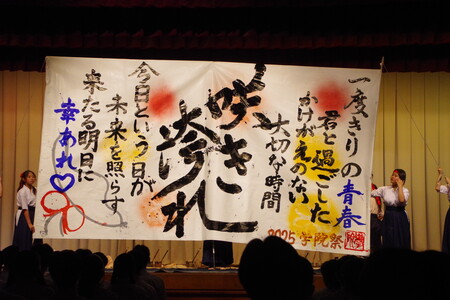 一度きりの青春
君と過ごした
かけがえのない
大切な時間
咲き
誇れ
今日という日が
未来を照らす
来たる明日に
幸あれ♡
2025学院祭